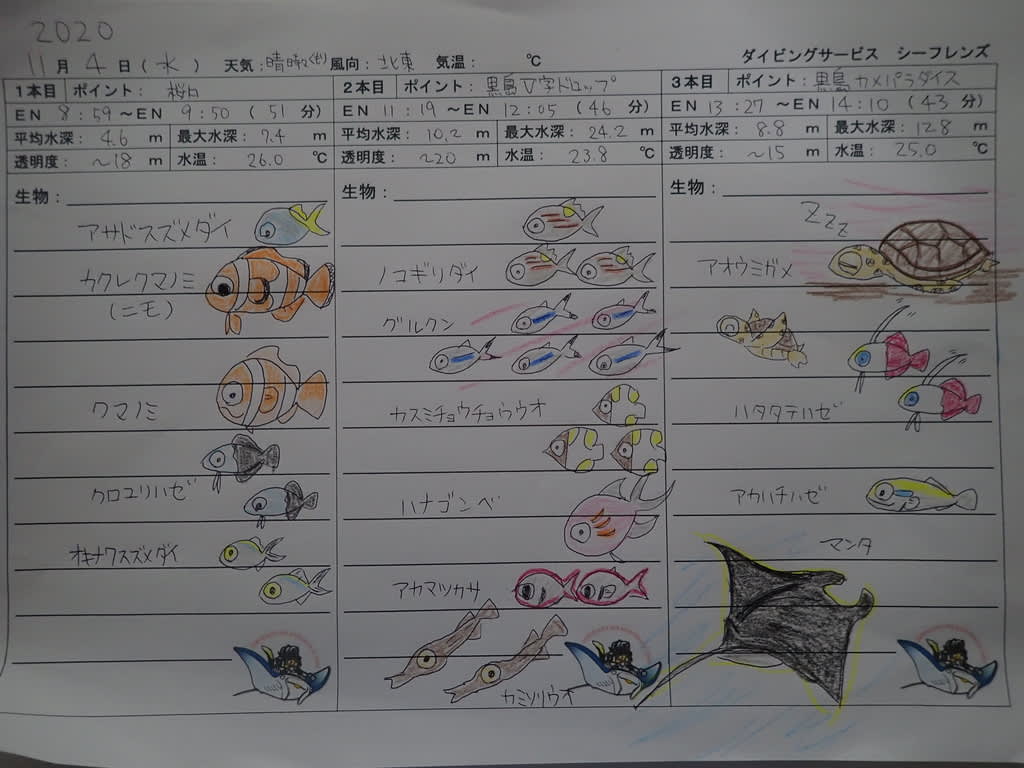 2020
11月 4日(水) 天気:晴時々くもり 風向:北東 気温: ℃ ダイビングサービス シーフレンズ
1本目 ポイント: 桜口
EN 8:59~EN 9:50(51分)
平均水深: 4.6 m 最大水深: 7.4 m
透明度: ~18 m 水温: 26.0 ℃
生物:
アサドスズメダイ
カクレクマノミ
(ニモ)
クマノミ
クロユリハゼ
オキナワスズメダイ
2本目 ポイント: 黒島V字ドロップ
EN 11:19~EN 12:05(46分)
平均水深: 10.2 m 最大水深: 24.2 m
透明度: ~20 m 水温: 23.8 ℃
生物:
ノコギリダイ
グルクン
カスミチョウチョウウオ
ハナゴンベ
アカマツカサ
カミソリウオ
3本目 ポイント: 黒島カメパラダイス
EN 13:27~EN 14:10(43分)
平均水深: 8.8 m 最大水深: 12.8 m
透明度: ~15 m 水温: 25.0 ℃
生物:
ZZZ
アオウミガメ
ハタタテハゼ
アカハチハゼ
マンタ